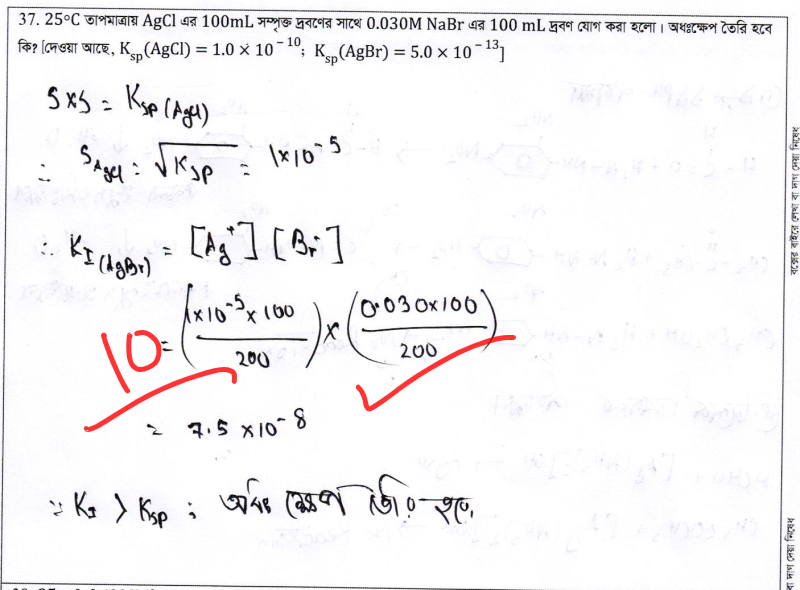 37. 25°C তাপমাত্রায় AgCl এর 100mL সম্পৃক্ত দ্রবণের সাথে 0.030M NaBr এর 100 mL দ্রবণ যোগ করা হলো। অধঃক্ষেপ তৈরি হবে
কি? [দেওয়া আছে, K_sp(AgCl) = 1.0 × 10⁻¹⁰; K_sp(AgBr) = 5.0 × 10⁻¹³]
S×S = K_sp (AgCl)
∴ S_AgCl = √K_sp = 1×10⁻⁵
∴ K_I (AgBr) = [Ag⁺] [Br⁻]
= (1×10⁻⁵×100/200) × (0.030×100/200)
10
= 7.5 ×10⁻⁸
∵ K_I > K_sp ; অধঃক্ষেপ তৈরি হবে.
বক্সের বাইরে লেখা বা দাগ দেয়া নিষেধ
বা দাগ দেয়া নিষেধ